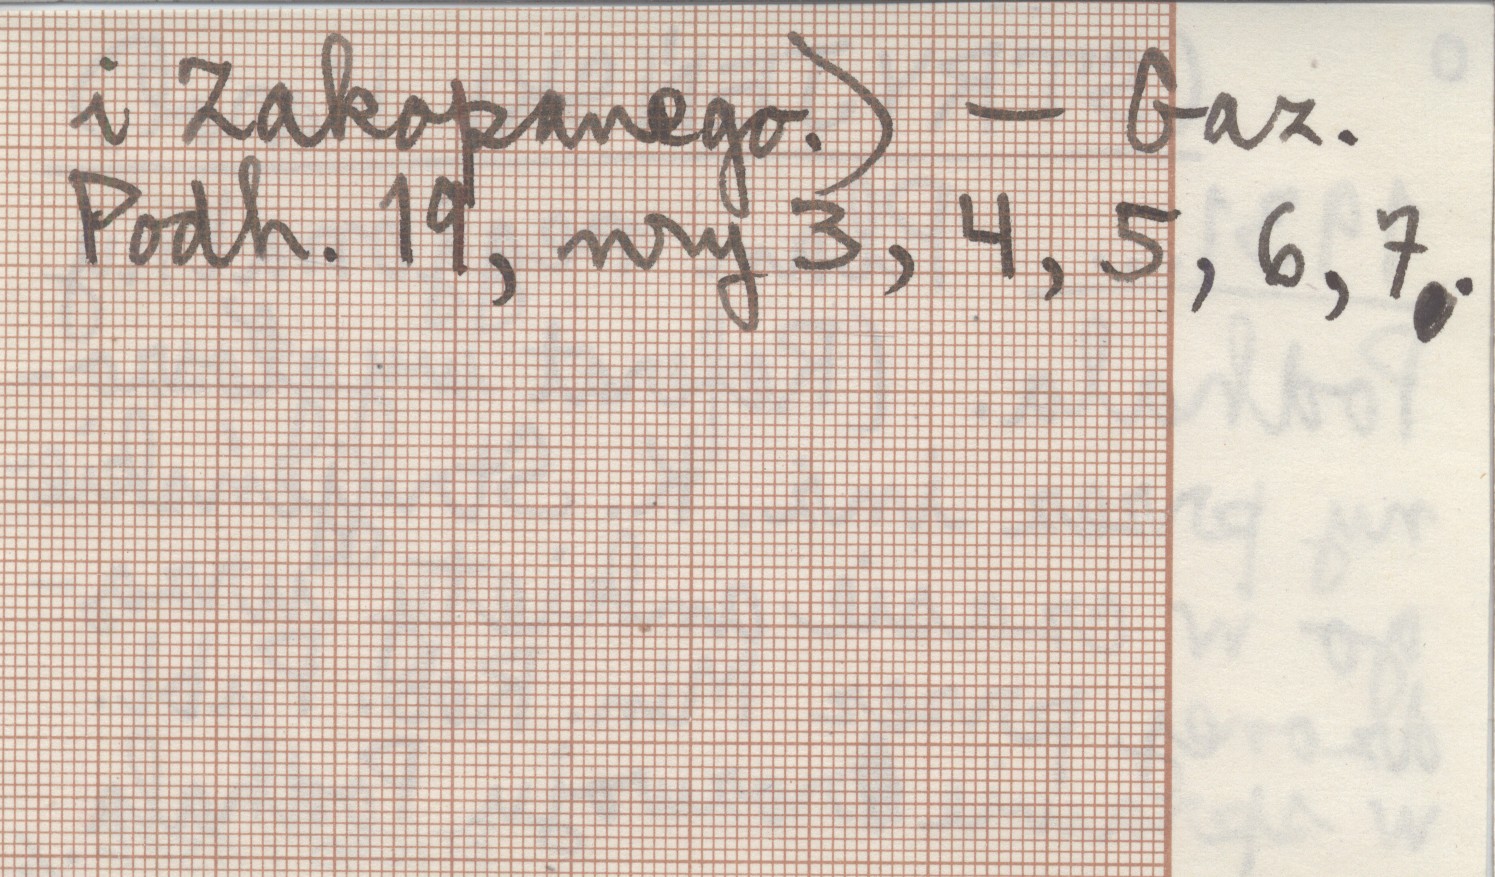 i Zakopanego.) — Gaz.
Podh. 19, nry 3, 4, 5, 6, 7.